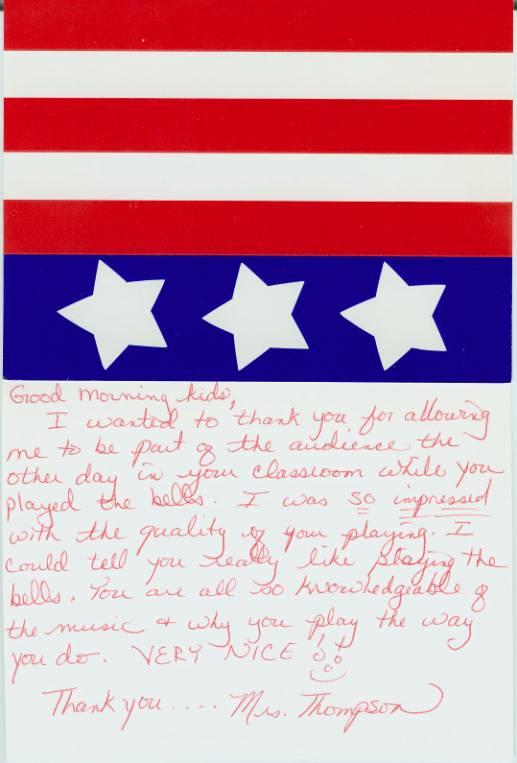 Good morning kids,
I wanted to thank you for allowing
me to be part of the audience the
other day in your classroom while you
played the bells. I was so impressed
with the quality of your playing. I
could tell you really like playing the
bells. You are all so knowledgeable of
the music & why you play the way
you do. VERY NICE!
Thank you.... Mrs. Thompson